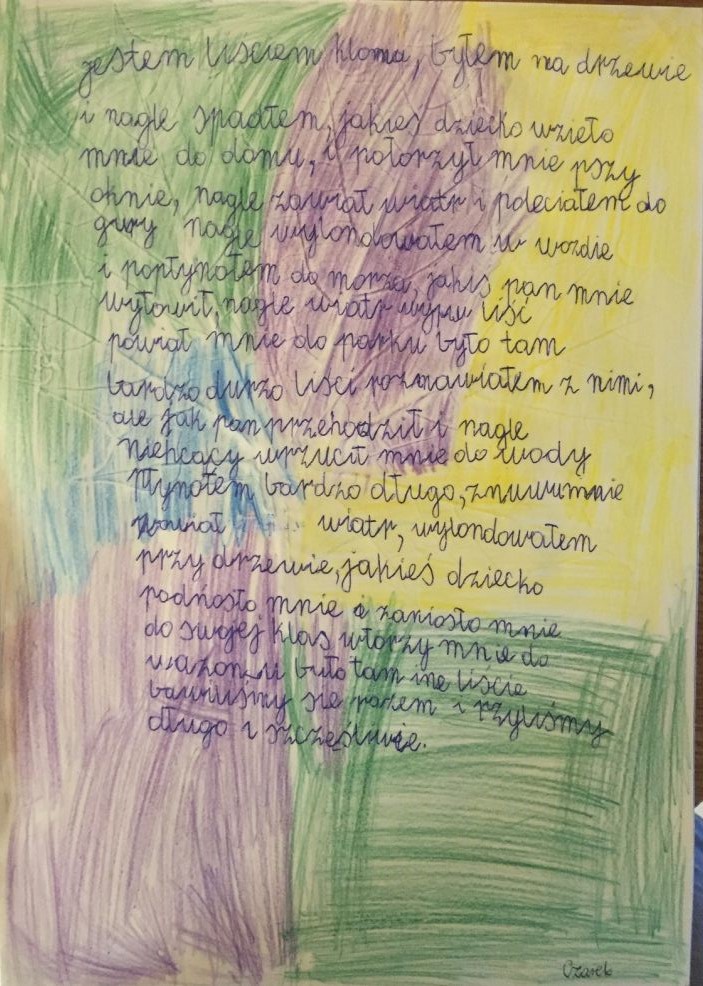 jestem lisciem klonu, byłem na drzewie
i nagle spadłem, jakieś dziecko wzieło
mnie do domu, i połorzył mnie pszy
oknie, nagle zawiał wiatr i poleciałem do
gury nagle wylondowałem w wodzie
i popłynołem do morza, jakis pan mnie
wyłowił, nagle wiatr liść
powiał mnie do parku było tam
bardzo durzo liści rozmawiałem z nimi,
ale jak pan przehodził i nagle
niehcący wrzucił mnie do wody
Płynołem bardzo długo, znuwu mnie
powiał wiatr, wylondowałem
przy drzewie, jakieś dziecko
podnosło mnie i zaniosło mnie
do swojej klas włorzy mnie do
wazonu było tam ine liście
bawiliśmy sie razem i rzyliśmy
długo i szczęśliwie.
Czarek